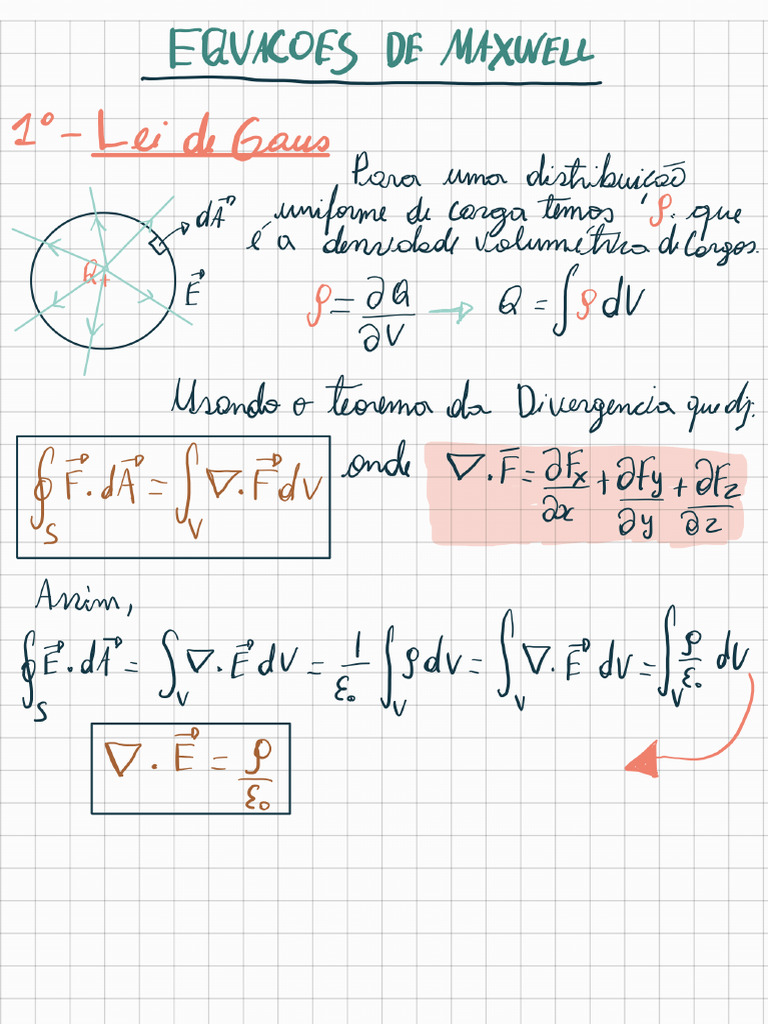 EQUACOES DE MAXWELL
1º - Lei de Gaus
Para uma distribuição
uniforme de carga temos 'ρ' que
é a densidade volumétrica de Cargas.
dA⃗
Q+
E⃗
ρ = ∂Q/∂V → Q = ∫ρ dV
Usando o teorema da Divergencia que diz.
∮_S F⃗ . dA⃗ = ∫_V ∇ . F⃗ dV onde ∇ . F̄ = ∂Fx/∂x + ∂Fy/∂y + ∂Fz/∂z
Assim,
∮_S E⃗ . dA⃗ = ∫_V ∇ . E⃗ dV = 1/ε₀ ∫_V ρ dV = ∫_V ∇ . E⃗ dV = ∫_V ρ/ε₀ dV
∇ . E⃗ = ρ/ε₀